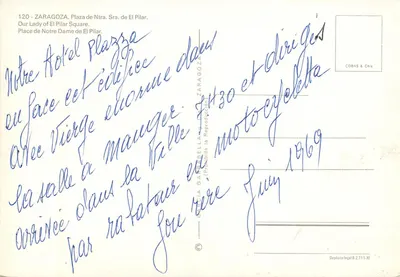 120 - ZARAGOZA. Plaza de Ntra. Sra. de El Pilar.
Our Lady of El Pilar Square.
Place de Notre Dame de El Pilar.
Notre Hotel Plazza
en face cet édifice
avec Vierge enorme dans
la salle a manger.
arrivée dans la Ville 7H30 et dirigés
par rabatour en motocycletta
Sou rire
Juin 1969
ZARAGOZA